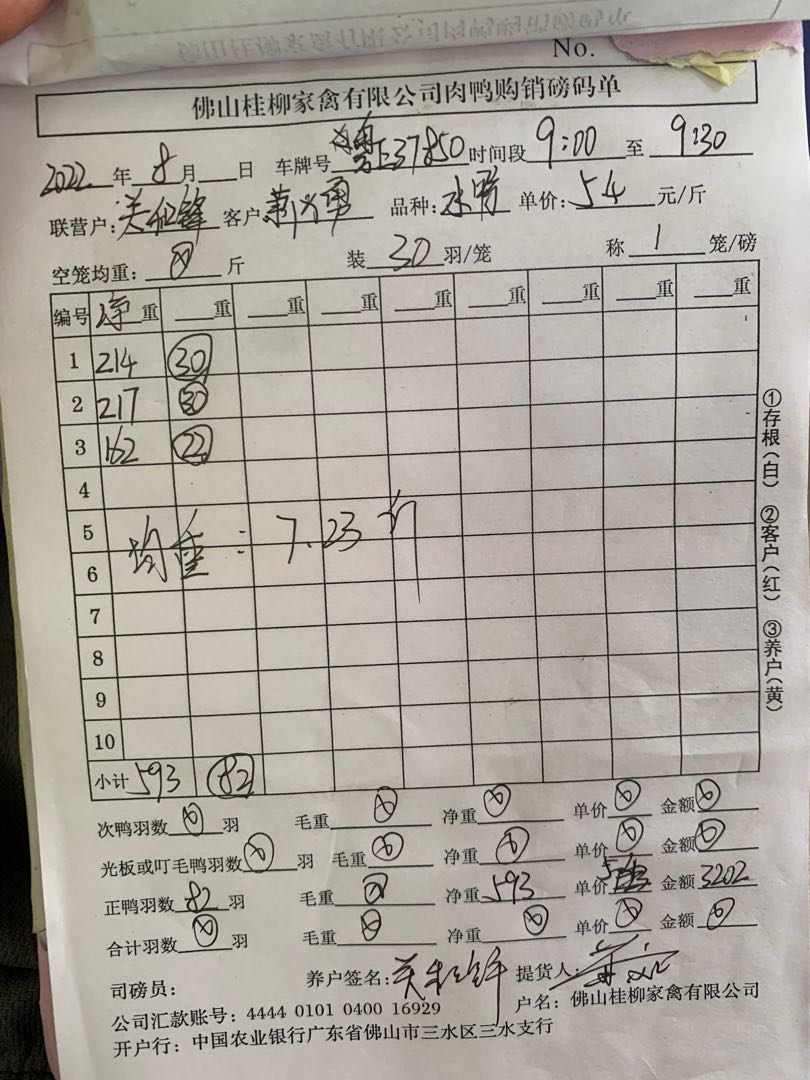 No.
佛山桂柳家禽有限公司肉鸭购销磅码单
2022年8月 日 车牌号 37850 时间段 9:00 至 9:30
联营户: 客户: 品种: 水鸭 单价: 54 元/斤
空笼均重: 斤 装 30 羽/笼 称 1 笼/磅
编号 净重 重 重 重 重 重 重 重 重
1 214 30
2 217 30
3 162 22
4
5
均重: 7.23斤
6
7
8
9
10
小计 593 82
次鸭羽数 羽 毛重 净重 单价 金额
光板或叮毛鸭羽数 羽 毛重 净重 单价 金额
正鸭羽数 82 羽 毛重 净重 593 单价 金额 3202
合计羽数 羽 毛重 净重 单价 金额
司磅员: 养户签名: 提货人:
公司汇款账号: 4444 0101 0400 16929 户名: 佛山桂柳家禽有限公司
开户行: 中国农业银行广东省佛山市三水区三水支行
①存根(白) ②客户(红) ③养户(黄)